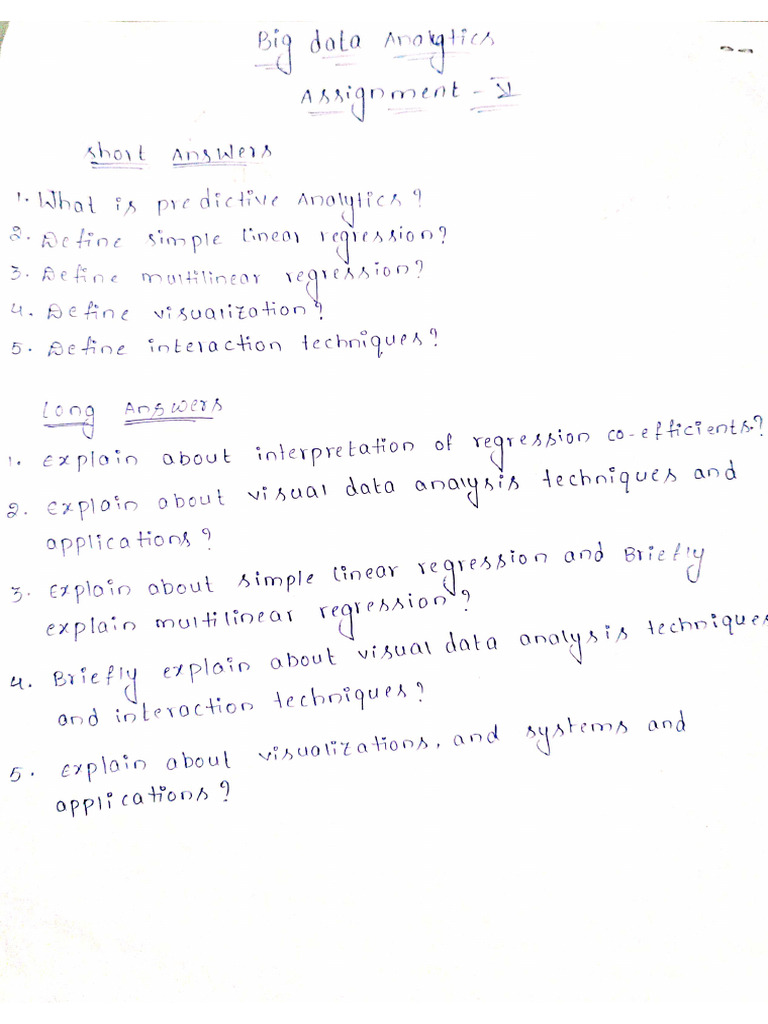 Big data Analytics
Assignment - V
Short Answers
1. What is predictive Analytics?
2. Define simple linear regression?
3. Define multilinear regression?
4. Define visualization?
5. Define interaction techniques?
Long Answers
1. Explain about interpretation of regression co-efficients?
2. Explain about visual data analysis techniques and
applications?
3. Explain about simple linear regression and Briefly
explain multilinear regression?
4. Briefly explain about visual data analysis techniques
and interaction techniques?
5. Explain about visualizations, and systems and
applications?